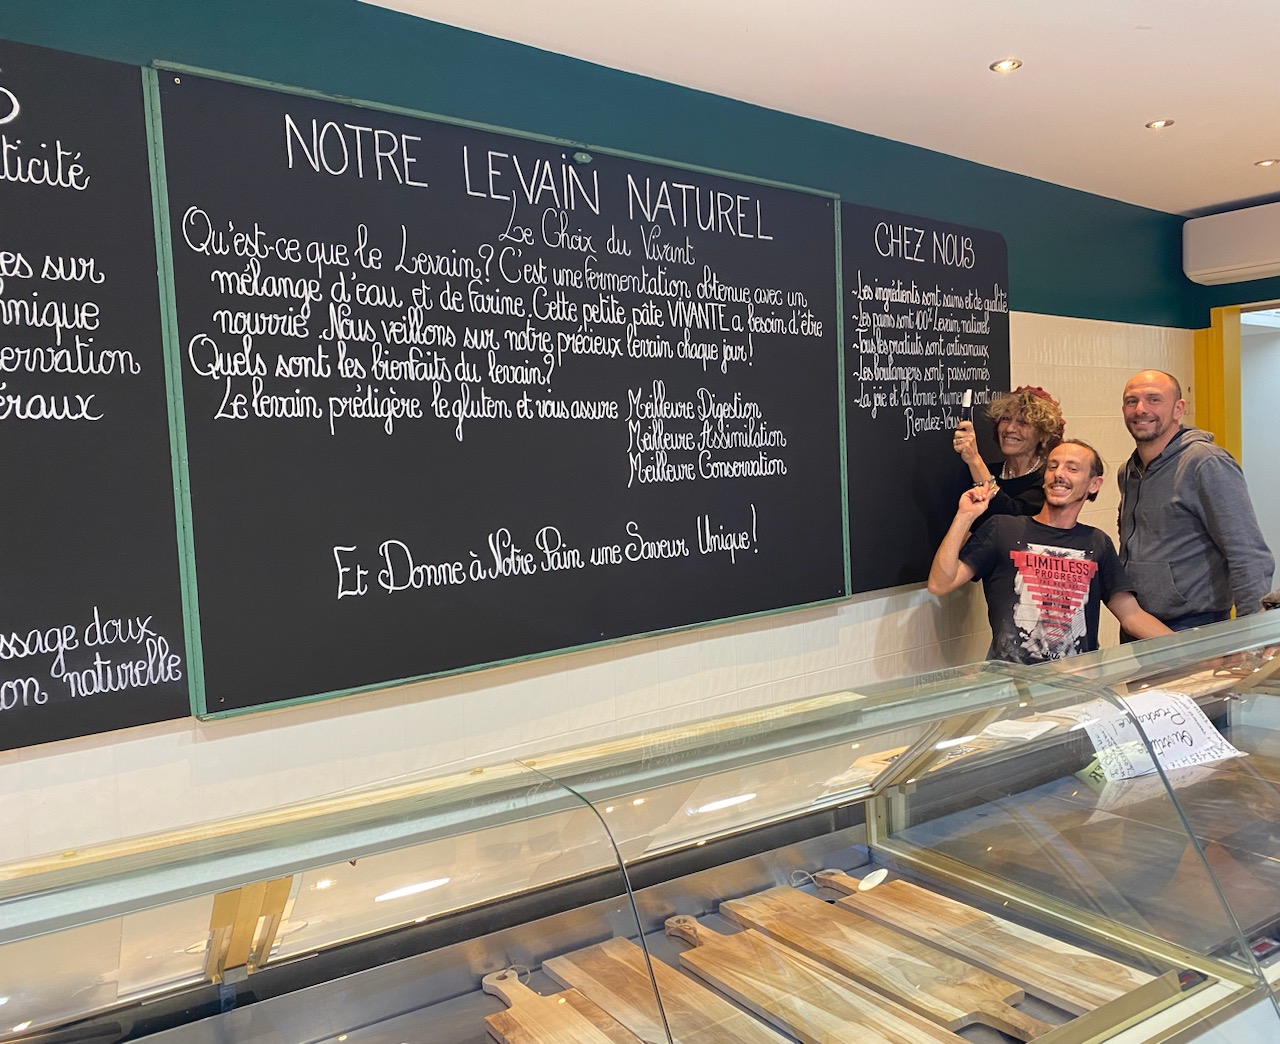 ticité
es sur
hnique
ervation
éraux
ssage doux
on naturelle
NOTRE LEVAIN NATUREL
Le Choix du Vivant
Qu'est-ce que le Levain? C'est une fermentation obtenue avec un
mélange d'eau et de farine. Cette petite pâte VIVANTE a besoin d'être
nourrie. Nous veillons sur notre précieux levain chaque jour!
Quels sont les bienfaits du levain?
Le levain prédigère le gluten et vous assure Meilleure Digestion
Meilleure Assimilation
Meilleure Conservation
Et Donne à Notre Pain une Saveur Unique!
CHEZ NOUS
~Les ingrédients sont sains et de qualité
~Les pains sont 100% Levain naturel
~Tous les produits sont artisanaux
~Les boulangers sont passionnés
~La joie et la bonne humeur sont au
Rendez-Vous
LIMITLESS
PROGRESS
THE NEW
Prochaine